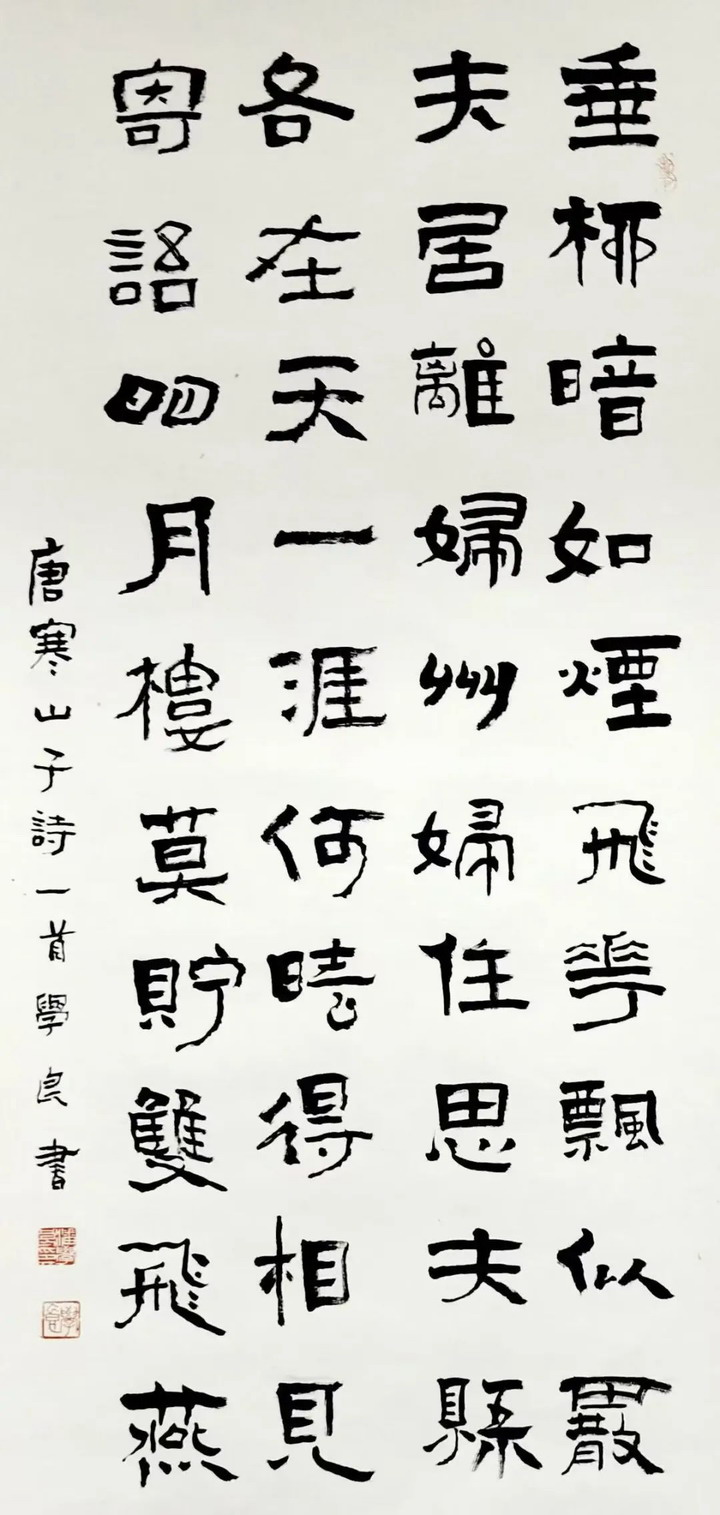 垂柳暗如煙飛花飄似霰
夫居離婦州婦住思夫縣
各在天一涯何時得相見
寄語明月樓莫貯雙飛燕
唐寒山子詩一首學良書